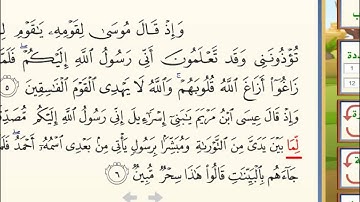 وَإِذْ قَالَ مُوسَىٰ لِقَوْمِهِۦ يَـٰقَوْمِ لِمَ
تُؤْذُونَنِى وَقَد تَّعْلَمُونَ أَنِّى رَسُولُ ٱللَّهِ إِلَيْكُمْ ۖ فَلَمَّا
زَاغُوٓا۟ أَزَاغَ ٱللَّهُ قُلُوبَهُمْ ۚ وَٱللَّهُ لَا يَهْدِى ٱلْقَوْمَ ٱلْفَـٰسِقِينَ ٥
وَإِذْ قَالَ عِيسَى ٱبْنُ مَرْيَمَ يَـٰبَنِىٓ إِسْرَٰٓءِيلَ إِنِّى رَسُولُ ٱللَّهِ إِلَيْكُم مُّصَدِّقًا
لِّمَا بَيْنَ يَدَىَّ مِنَ ٱلتَّوْرَىٰةِ وَمُبَشِّرًۢا بِرَسُولٍ يَأْتِى مِنۢ بَعْدِى ٱسْمُهُۥٓ أَحْمَدُ ۖ فَلَمَّا
جَآءَهُم بِٱلْبَيِّنَـٰتِ قَالُوا۟ هَـٰذَا سِحْرٌ مُّبِينٌ ٦